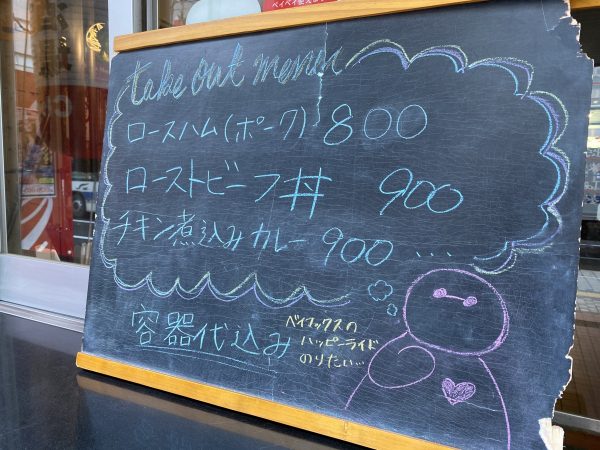 take out menu
ロースハム(ポーク) 800
ローストビーフ丼 900
チキン煮込みカレー 900 ...
容器代込み
ベイマックスの
ハッピーライド
のりたい...